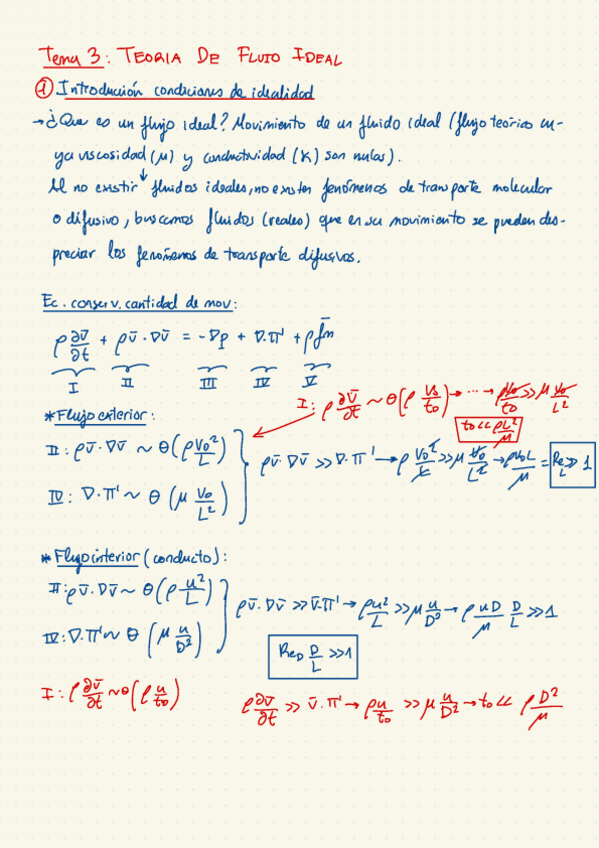 Tema 3: TEORIA DE FLUJO IDEAL
① Introducción condiciones de idealidad
→ ¿Que es un flujo ideal? Movimiento de un fluido ideal (flujo teórico cu-
ya viscosidad (μ) y conductividad (K) son nulas).
Al no existir fluidos ideales, no existen fenómenos de transporte molecular
o difusivo, buscamos fluidos (reales) que en su movimiento se pueden des-
preciar los fenómenos de transporte difusivos.
Ec. conserv. cantidad de mov:
ρ ∂v̄/∂t + ρv̄·∇v̄ = -∇p + ∇·π' + ρf̄m
I II III IV V
I: ρ ∂v̄/∂t ~ θ(ρ v₀/t₀) → ... → ρv₀/t₀ >> μ v₀/L²
t₀ << ρL²/μ
* Flujo exterior:
II: ρv̄·∇v̄ ~ θ(ρ v₀²/L)
ρv̄·∇v̄ >> ∇·π' → ρ v₀²/L >> μ v₀/L² → ρv₀L/μ = Re_L >> 1
IV: ∇·π' ~ θ(μ v₀/L²)
* Flujo interior (conducto):
II: ρv̄·∇v̄ ~ θ(ρ u²/L)
ρv̄·∇v̄ >> ∇·π' → ρu²/L >> μ u/D² → ρuD/μ D/L >> 1
IV: ∇·π' ~ θ(μ u/D²)
Re_D D/L >> 1
I: ρ ∂v̄/∂t ~ θ(ρ u/t₀)
ρ ∂v̄/∂t >> ∇·π' → ρu/t₀ >> μ u/D² → t₀ << ρ D²/μ